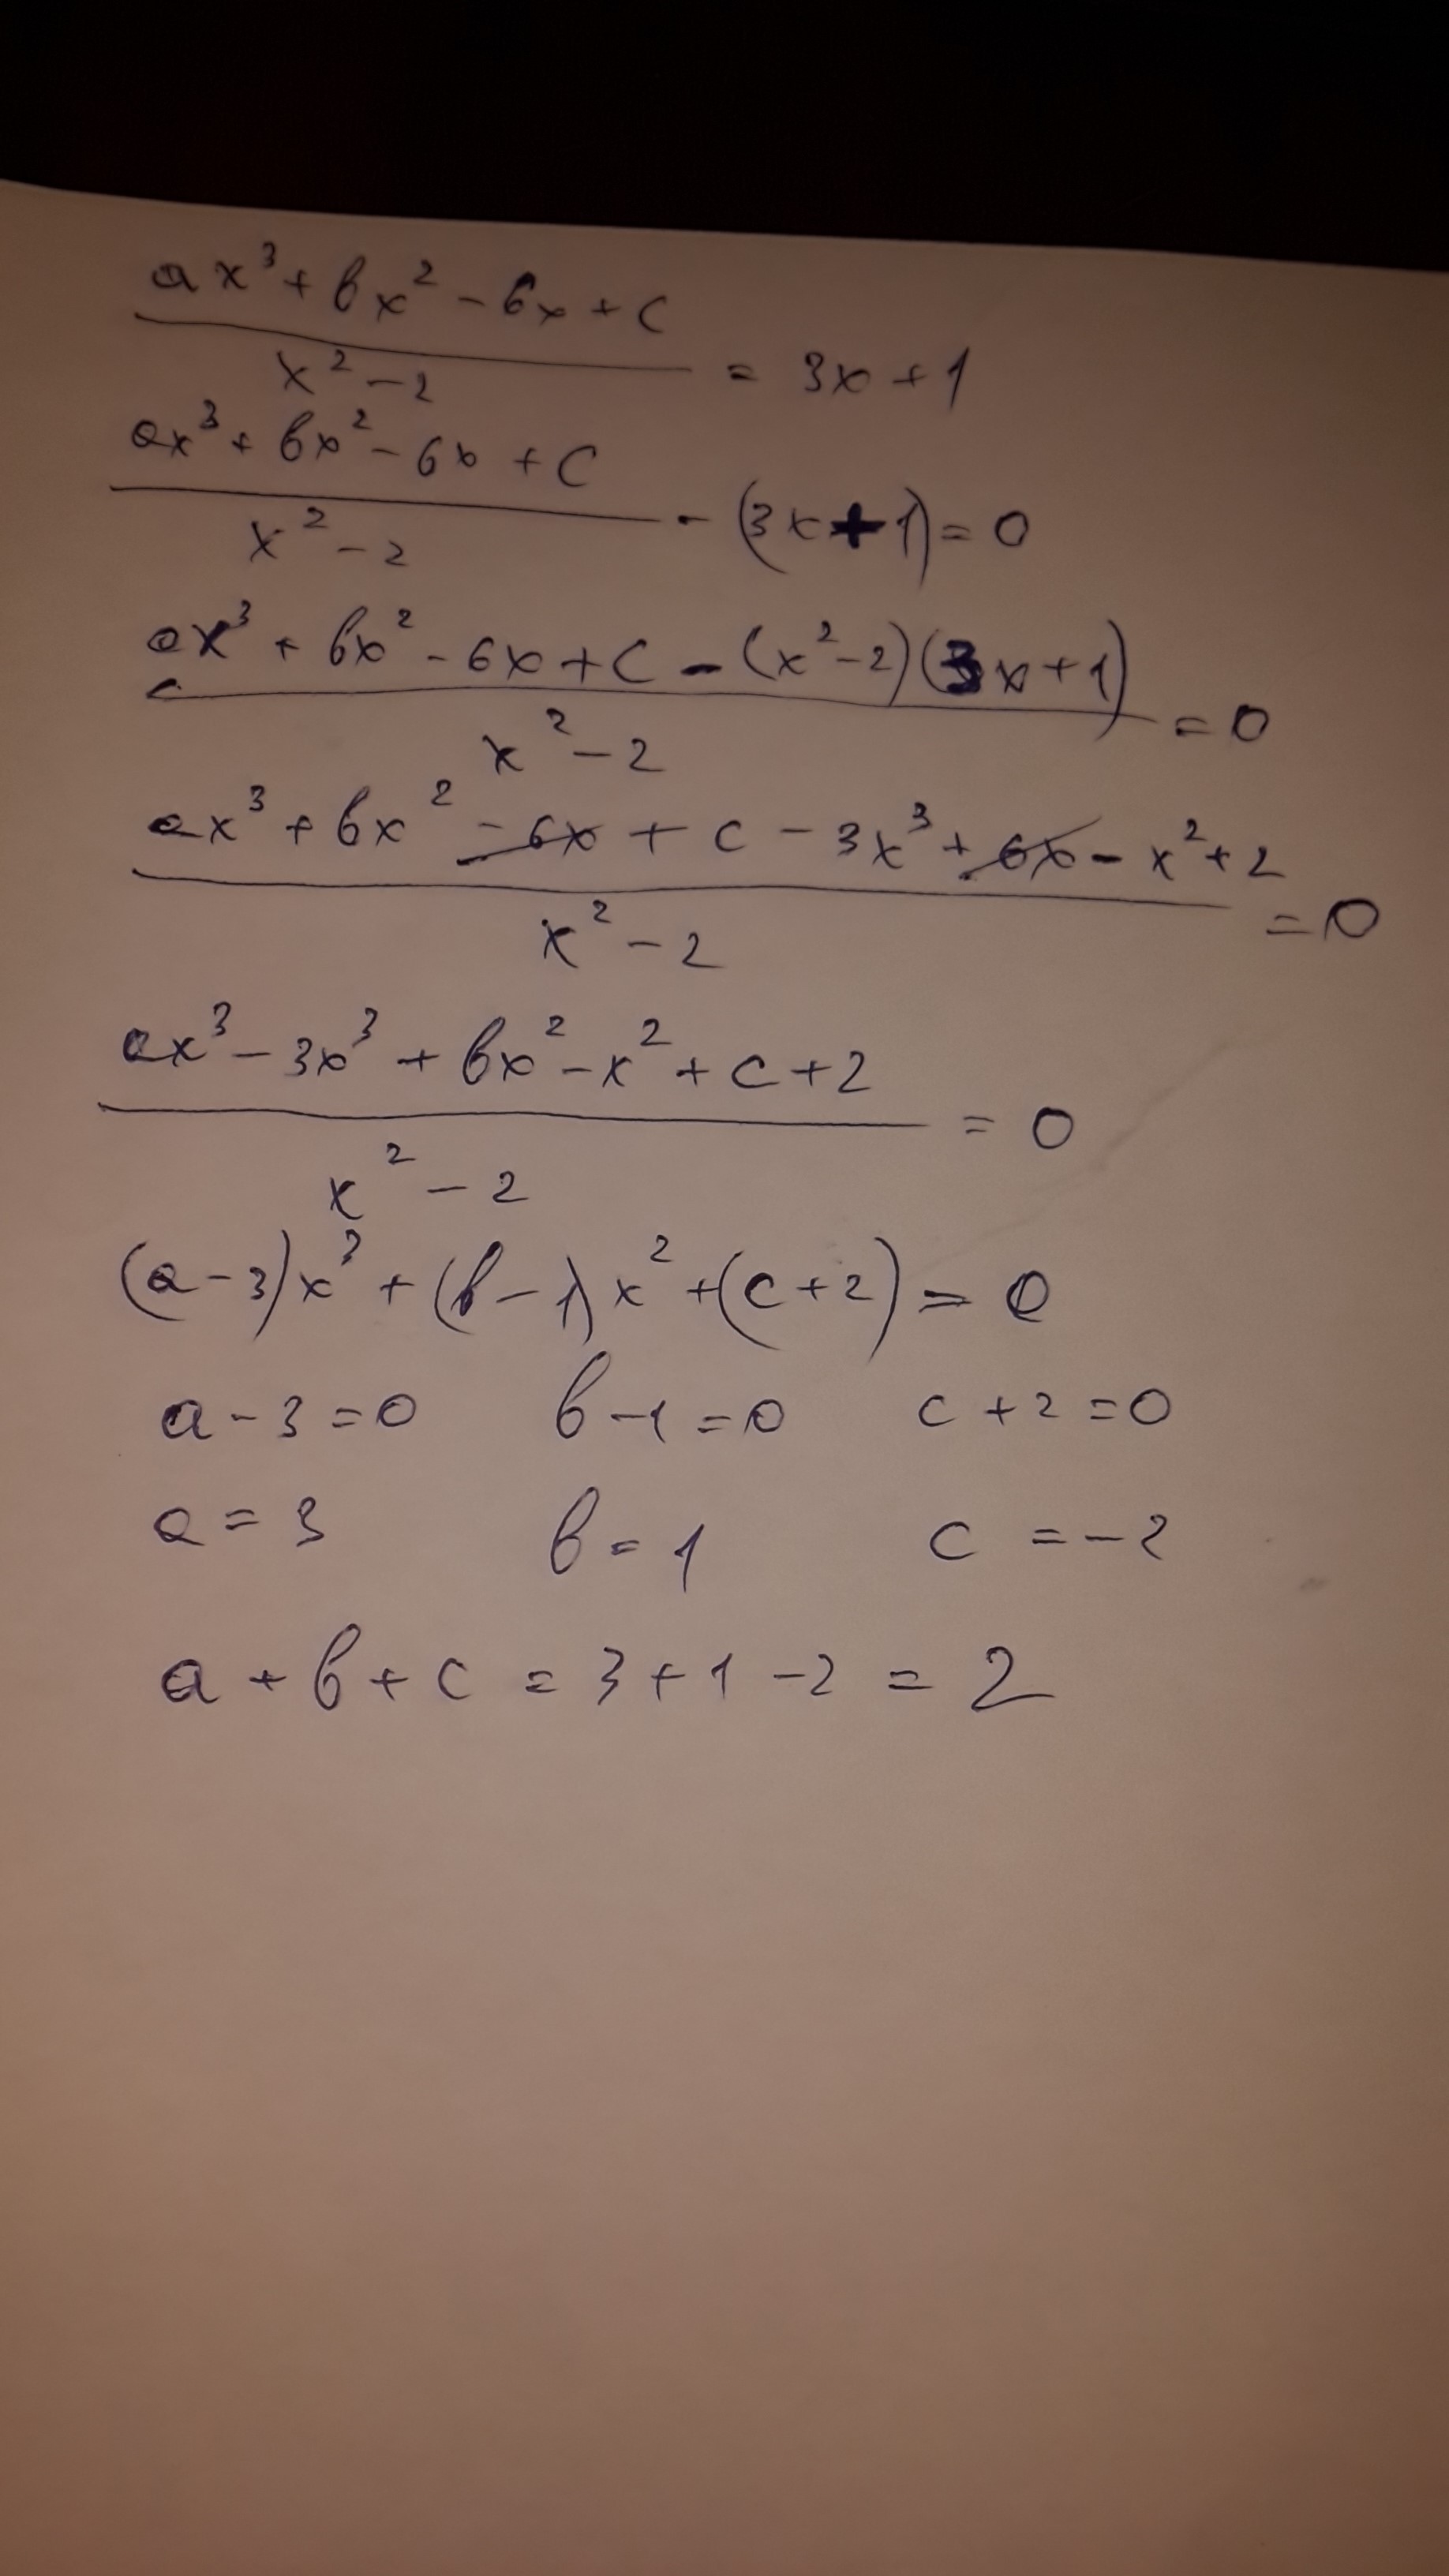 ax³ + bx² - 6x + c
x² - 2 = 3x + 1
ax³ + bx² - 6x + c
x² - 2 - (3x + 1) = 0
ax³ + bx² - 6x + c - (x² - 2)(3x + 1)
x² - 2 = 0
ax³ + bx² - 6x + c - 3x³ + 6x - x² + 2
x² - 2 = 0
ax³ - 3x³ + bx² - x² + c + 2
x² - 2 = 0
(a - 3)x³ + (b - 1)x² + (c + 2) = 0
a - 3 = 0 b - 1 = 0 c + 2 = 0
a = 3 b = 1 c = -2
a + b + c = 3 + 1 - 2 = 2